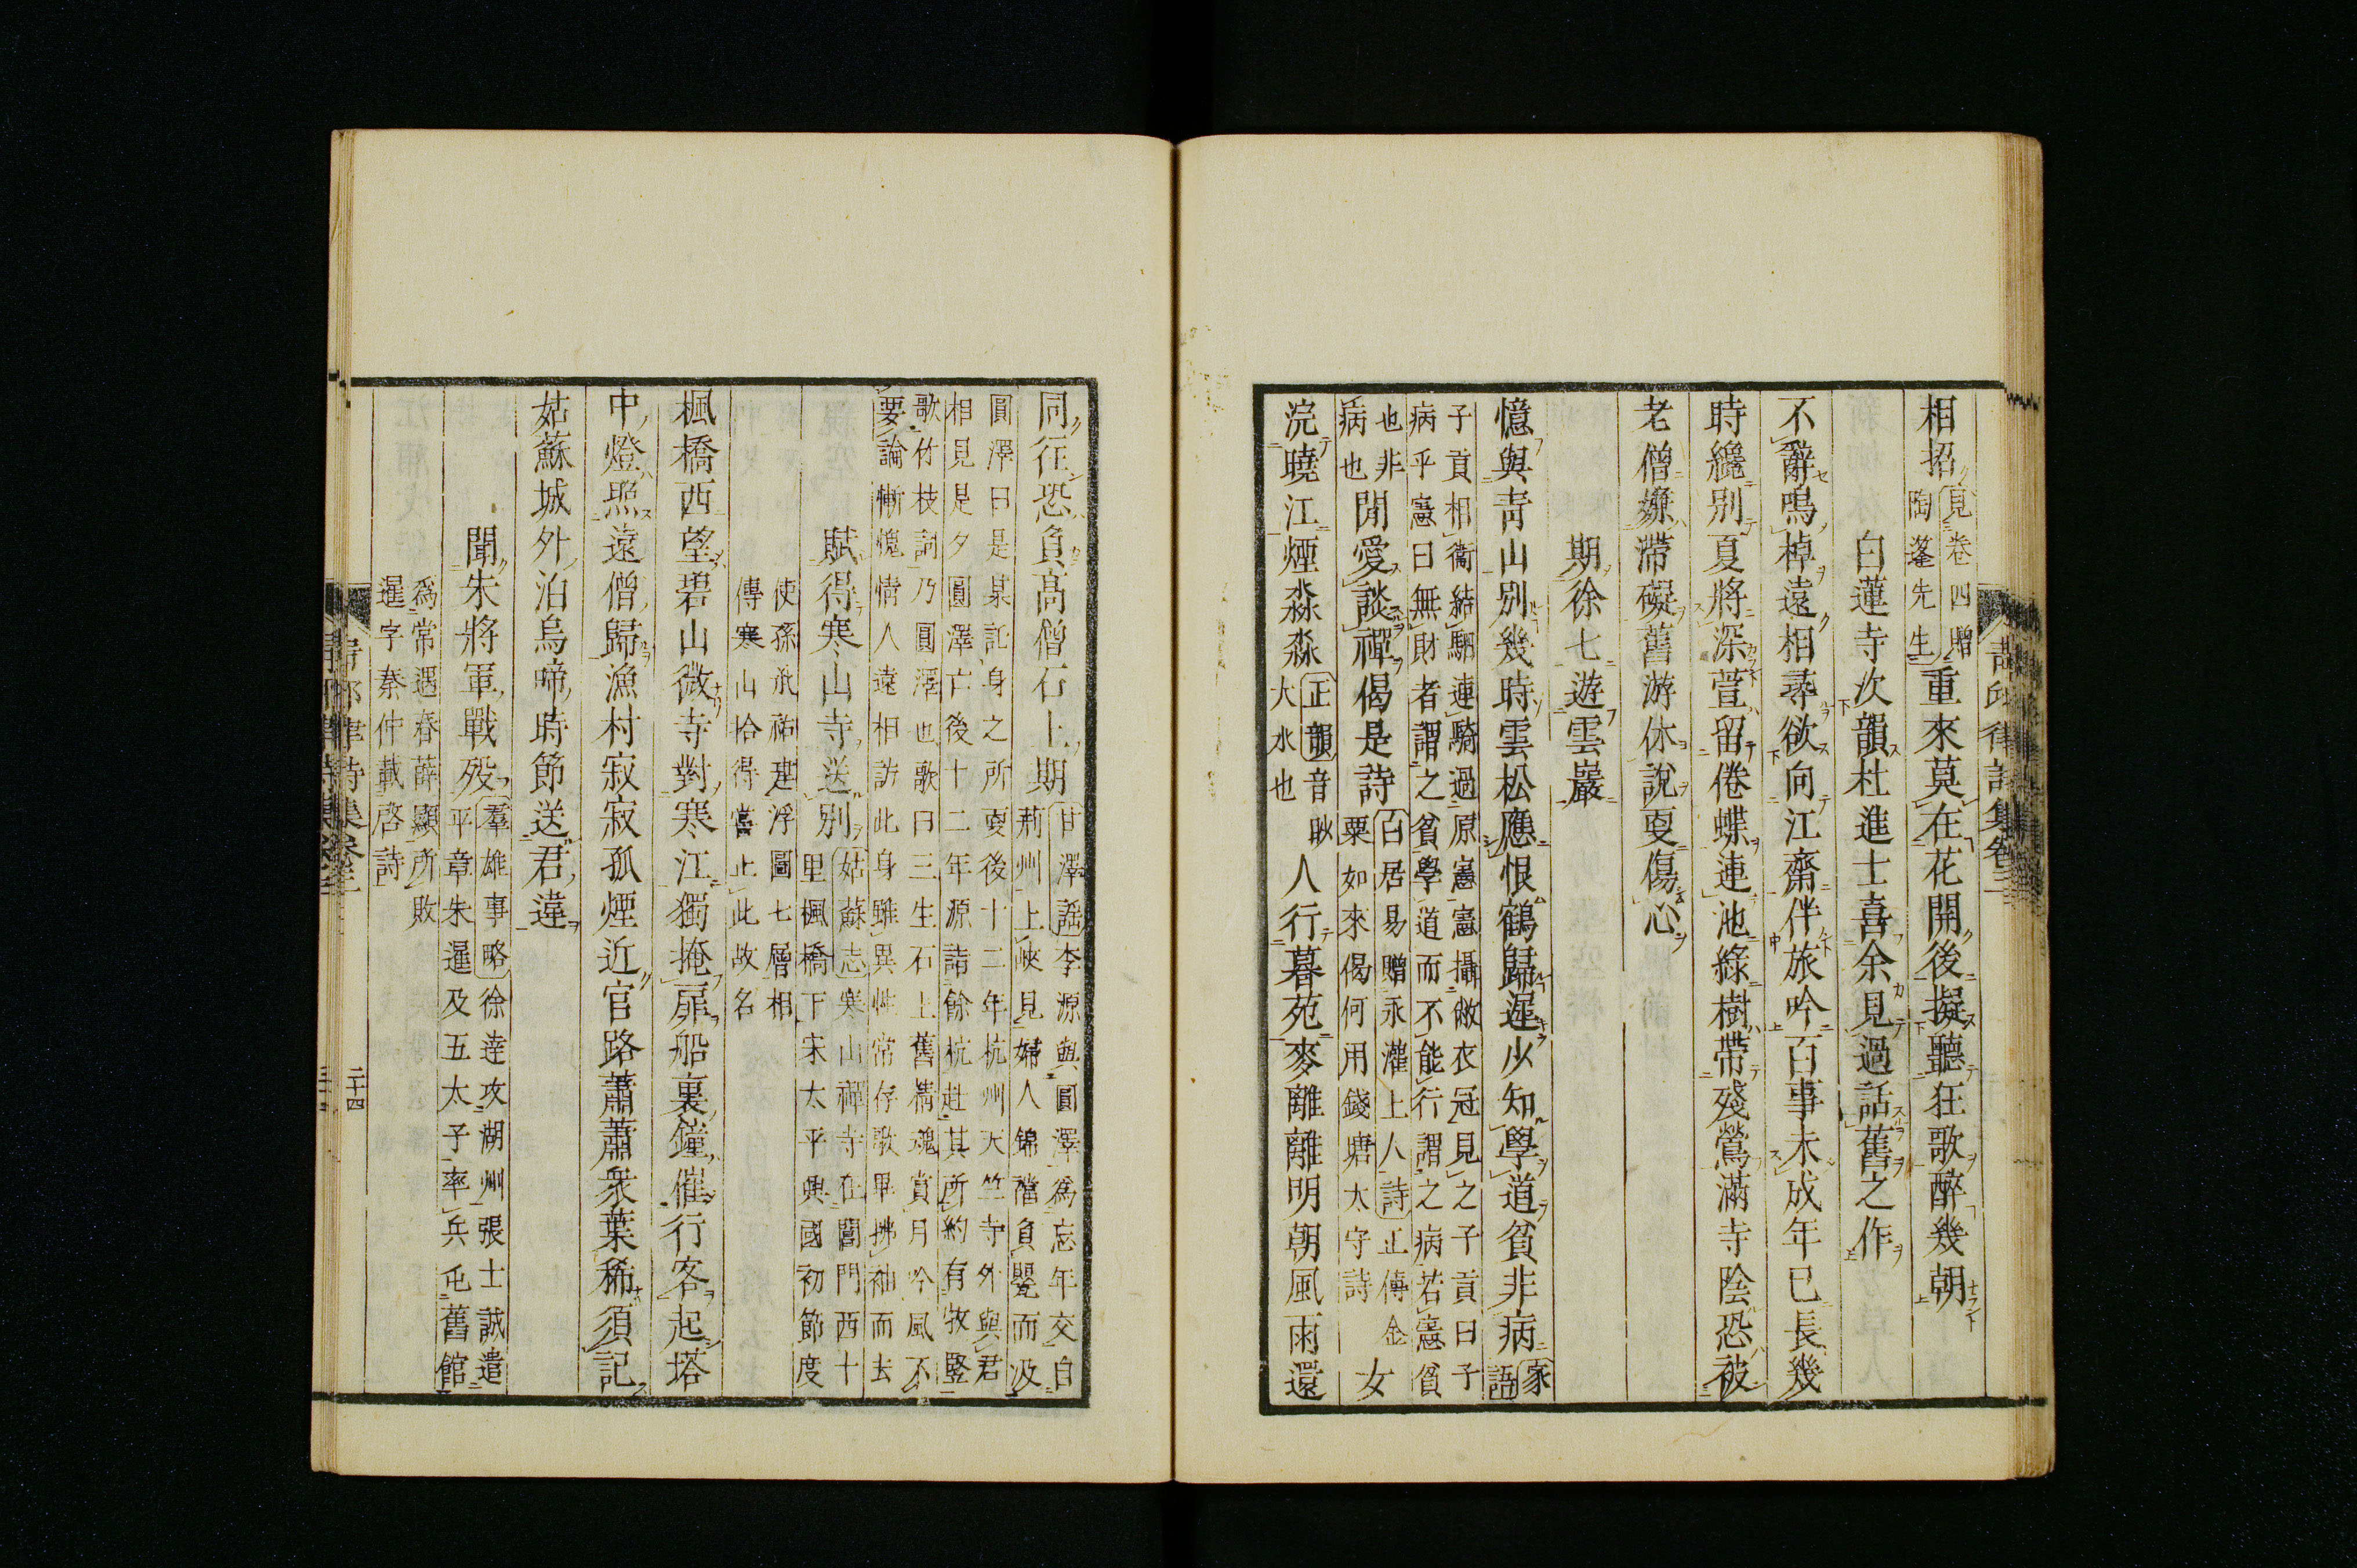 青邱律詩集卷三
相招見卷四贈陶蓬先生重來莫在花開後擬聽狂歌醉幾朝
白蓮寺次韻杜進士喜余見過話舊之作
不辭鳴棹遠相尋欲向江齋伴旅吟百事未成年已長幾
時纔別夏將深萱留倦蝶連池綠樹帶殘鶯滿寺陰恐被
老僧嫌滯礙舊游休說更傷心
期徐七遊雲巖
憶與青山別幾時雲松應恨鶴歸遲少知學道貧非病家語
子貢相衞結駟連騎過原憲憲攝敝衣冠見之子貢曰子
病乎憲曰無財者謂之貧學道而不能行謂之病若憲貧
也非病也閒愛談禪偈是詩白居易贈永灌上人詩正傳金粟如來偈何用錢塘太守詩女
浣曉江煙淼淼正韻音眇大水也人行暮苑麥離離明朝風雨還
同往恐負高僧石上期甘澤謡李源與圓澤爲忘年交自荊州上峽見婦人錦襠負甖而汲
圓澤曰是某託身之所更後十二年杭州天竺寺外與君
相見是夕圓澤亡後十二年源詣餘杭赴其所約有牧豎
歌竹枝詞乃圓澤也歌曰三生石上舊精魂賞月吟風不
要論慚愧情人遠相訪此身雖異性常存歌畢拂袖而去
賦得寒山寺送別姑蘇志寒山禪寺在閶門西十里楓橋下宋太平興國初節度
使孫承祐建浮圖七層相
傳寒山拾得嘗止此故名
楓橋西望碧山微寺對寒江獨掩扉船裏鐘催行客起塔
中燈照遠僧歸漁村寂寂孤煙近官路蕭蕭衆葉稀須記
姑蘇城外泊烏啼時節送君違
聞朱將軍戰歿羣雄事略徐達攻湖州張士誠遣平章朱暹及五太子率兵屯舊館
爲常遇春薛顯所敗
暹字秦仲載啓詩
青邱律詩集卷三
二十四